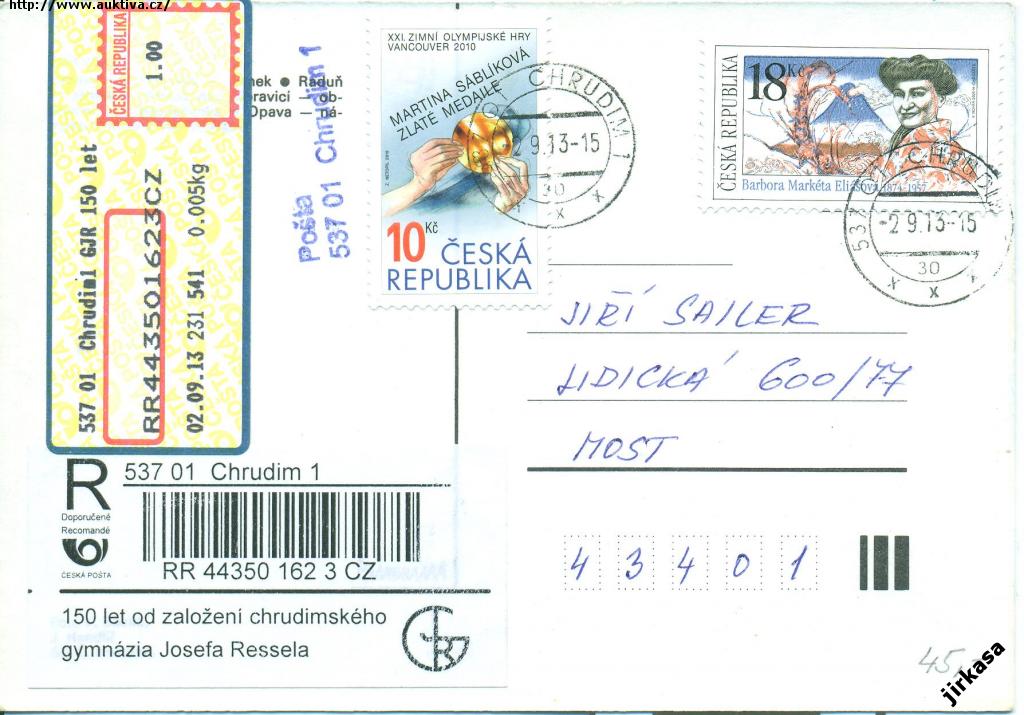 http://www.auktiva.cz/
ČESKÁ REPUBLIKA
1.00
537 01 Chrudim1 GJR 150 let
RR443501623CZ
02.09.13 231 541 0.005kg
nek ● Raduň
oravici – ob-
Opava – ná-
Pošta
537 01 Chrudim 1
XXI. ZIMNÍ OLYMPIJSKÉ HRY
VANCOUVER 2010
MARTINA SÁBLÍKOVÁ
ZLATÉ MEDAILE
10 Kč
ČESKÁ
REPUBLIKA
CHRUDIM 1
2 9.13-15
30
x x x
ČESKÁ REPUBLIKA
18 Kč
Barbora Markéta Eliášová 1874-1957
CHRUDIM
-2 9.13-15
30
x x x
JIŘÍ SAILER
LIDICKÁ 600/77
MOST
43401
R
Doporučené
Recomandé
ČESKÁ POŠTA
537 01 Chrudim 1
RR 44350 162 3 CZ
150 let od založení chrudimského
gymnázia Josefa Ressela
GJR
45,
jirkasa